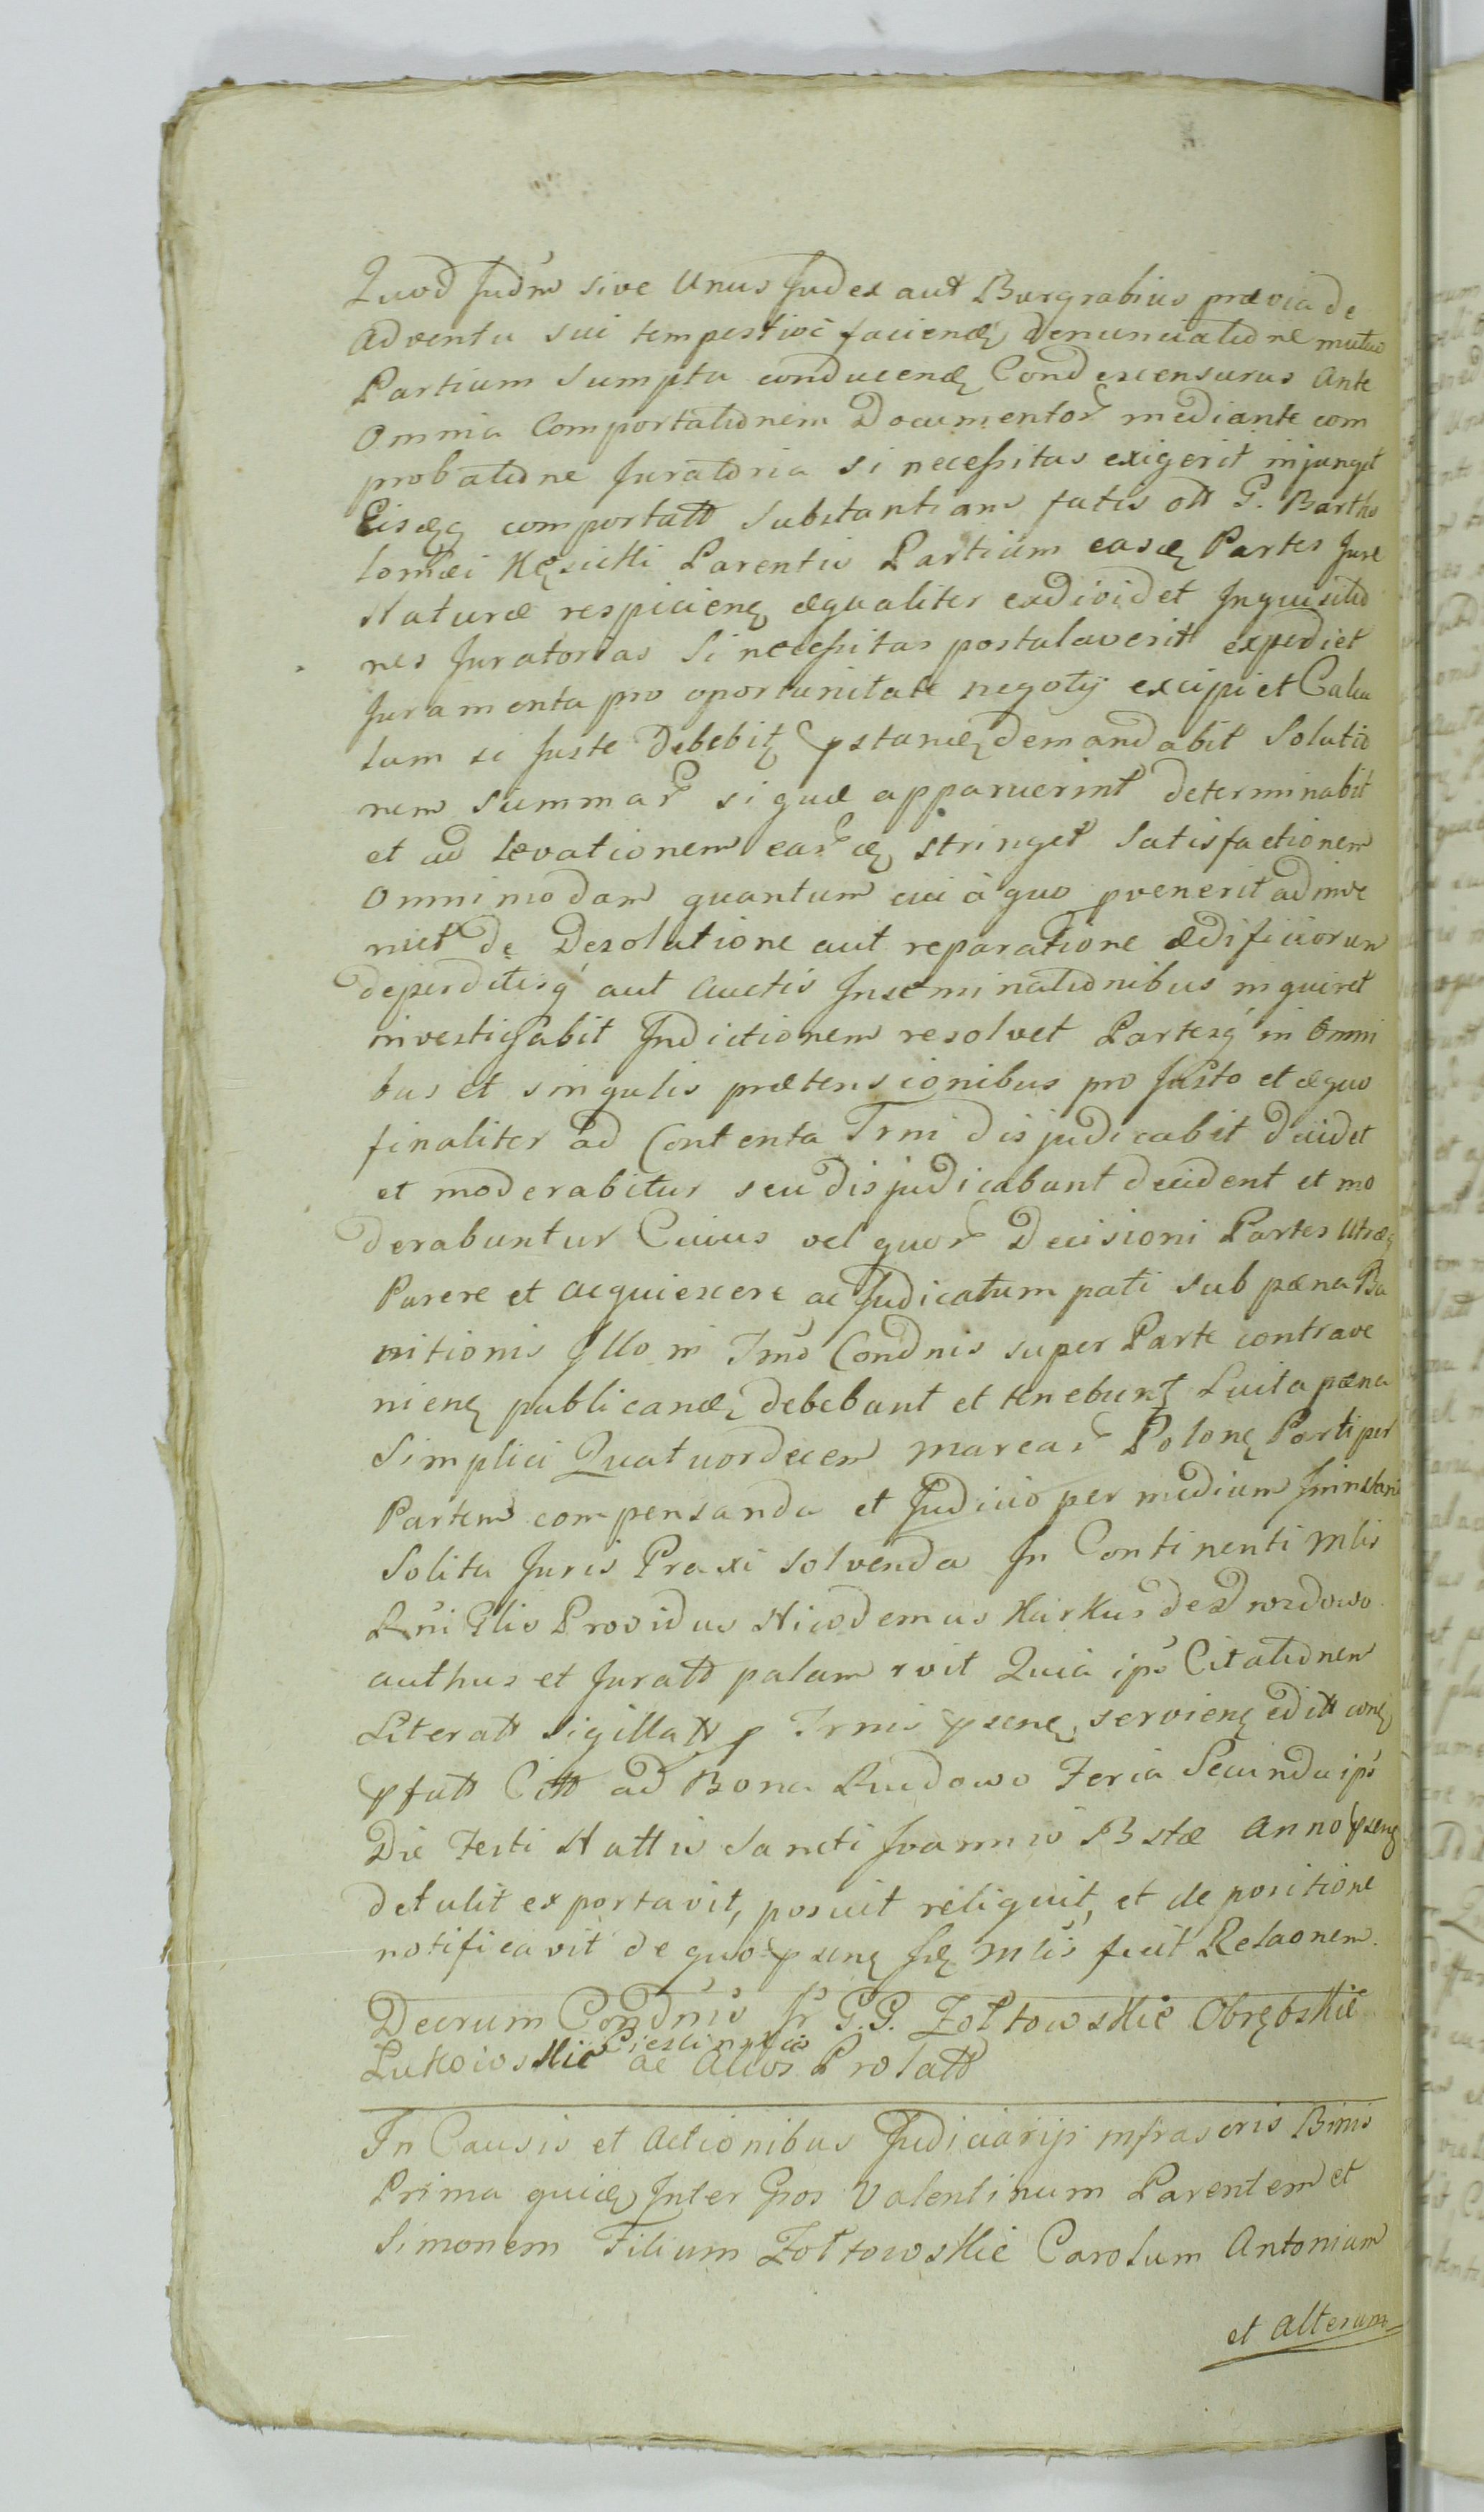 Quod Judm sive Unus Judex aut Burgrabius prævia de
adventu sui tempestivè faciendę denunciatione mutuo
Partium Sumptu conducendę Condescensurus Ante
Omnia Comportationem Documentor mediante com
probatione Juratoria si necessitas exigerit injunget
Eisdęq comportatt Substantiam fatis ott G. Bartho
lomæi Parentis Partium easdę Partes Jure
Naturæ respicienę æqualiter exdividet Inquisitio
nes Juratorias Si necessitas postulaverit expediet
Juramenta pro oportunitate negotij excipiet Calcu
lum si Juste Debebitę demandabit Solutio
nem Summar si quæ apparuerint determinabit
et ad levationem eardę stringet Satisfactionem
Omnimodam quantum cui à quo pvenerit adinve
niet De Desolatione aut reparatione ædificiorum
deperditisq aut Auctis Inseminationibus inquiret
investigabit Indictionem resolvet Partesq in Omni
bus et singulis prætensionibus pro Justo et æquo
finaliter ad Contenta Trni disjudicabit decidet
et moderabitur seu disjudicabunt decident et mo
derabuntur Cuius vel quor Decisioni Partes Utræq
Parere et acquiescere ac Judicatum pati sub pæna Ba
nitionis Illo in Trno Condnis super Parte contrave
nienę publicandę debebunt et tenebuntę Luita pæna
Simplici Quatuordecem marcar Polonę Parti per
Partem compensanda et Judicio per medium
Solita Juris Praxi Solvenda In Continenti Mlis
Rni Glis Providus Nicodemus de
authus et Juratt palam rvit Quia ips Citationem
Literatt Sigillatt p Trnis pzenę servienę editt conę
pfatt Citt ad Bona Rudowo Feria Secunda ips
Die Festi Nattis Sancti Joannis Bstæ Anno pzenę
detulit exportavit, posuit reliquit, et de positione
notificavit de quo pzenę Jdę Mlis fecit Relaonem.
Decrum Condnis Jr G.G. Zołtowskie Obrębskie
Ciesli
Lukowskie ac Alios Prolatt
In Causis et Actionibus Judiciarijs infrascris Binis
Prima quidę Inter Gsos Valentinum Parentem et
Simonem Filium Zołtowskie Carolum Antonium
et Alterum